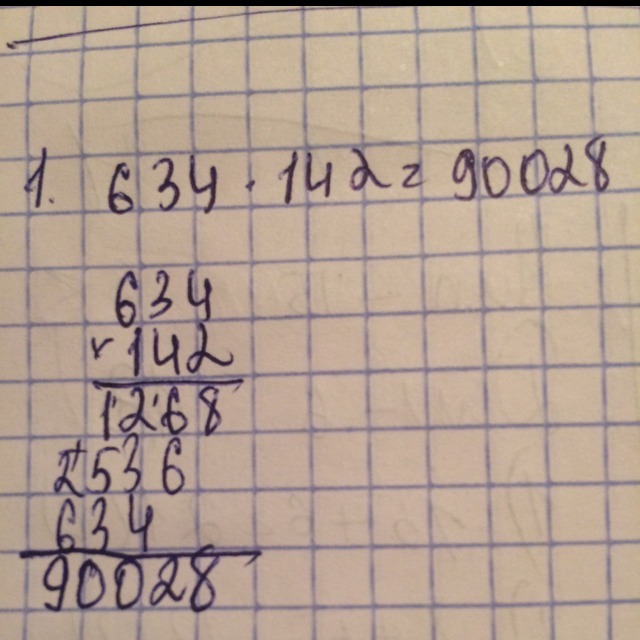 1. 634 · 142 = 90028
634
× 142
1268
+ 2536
634
90028